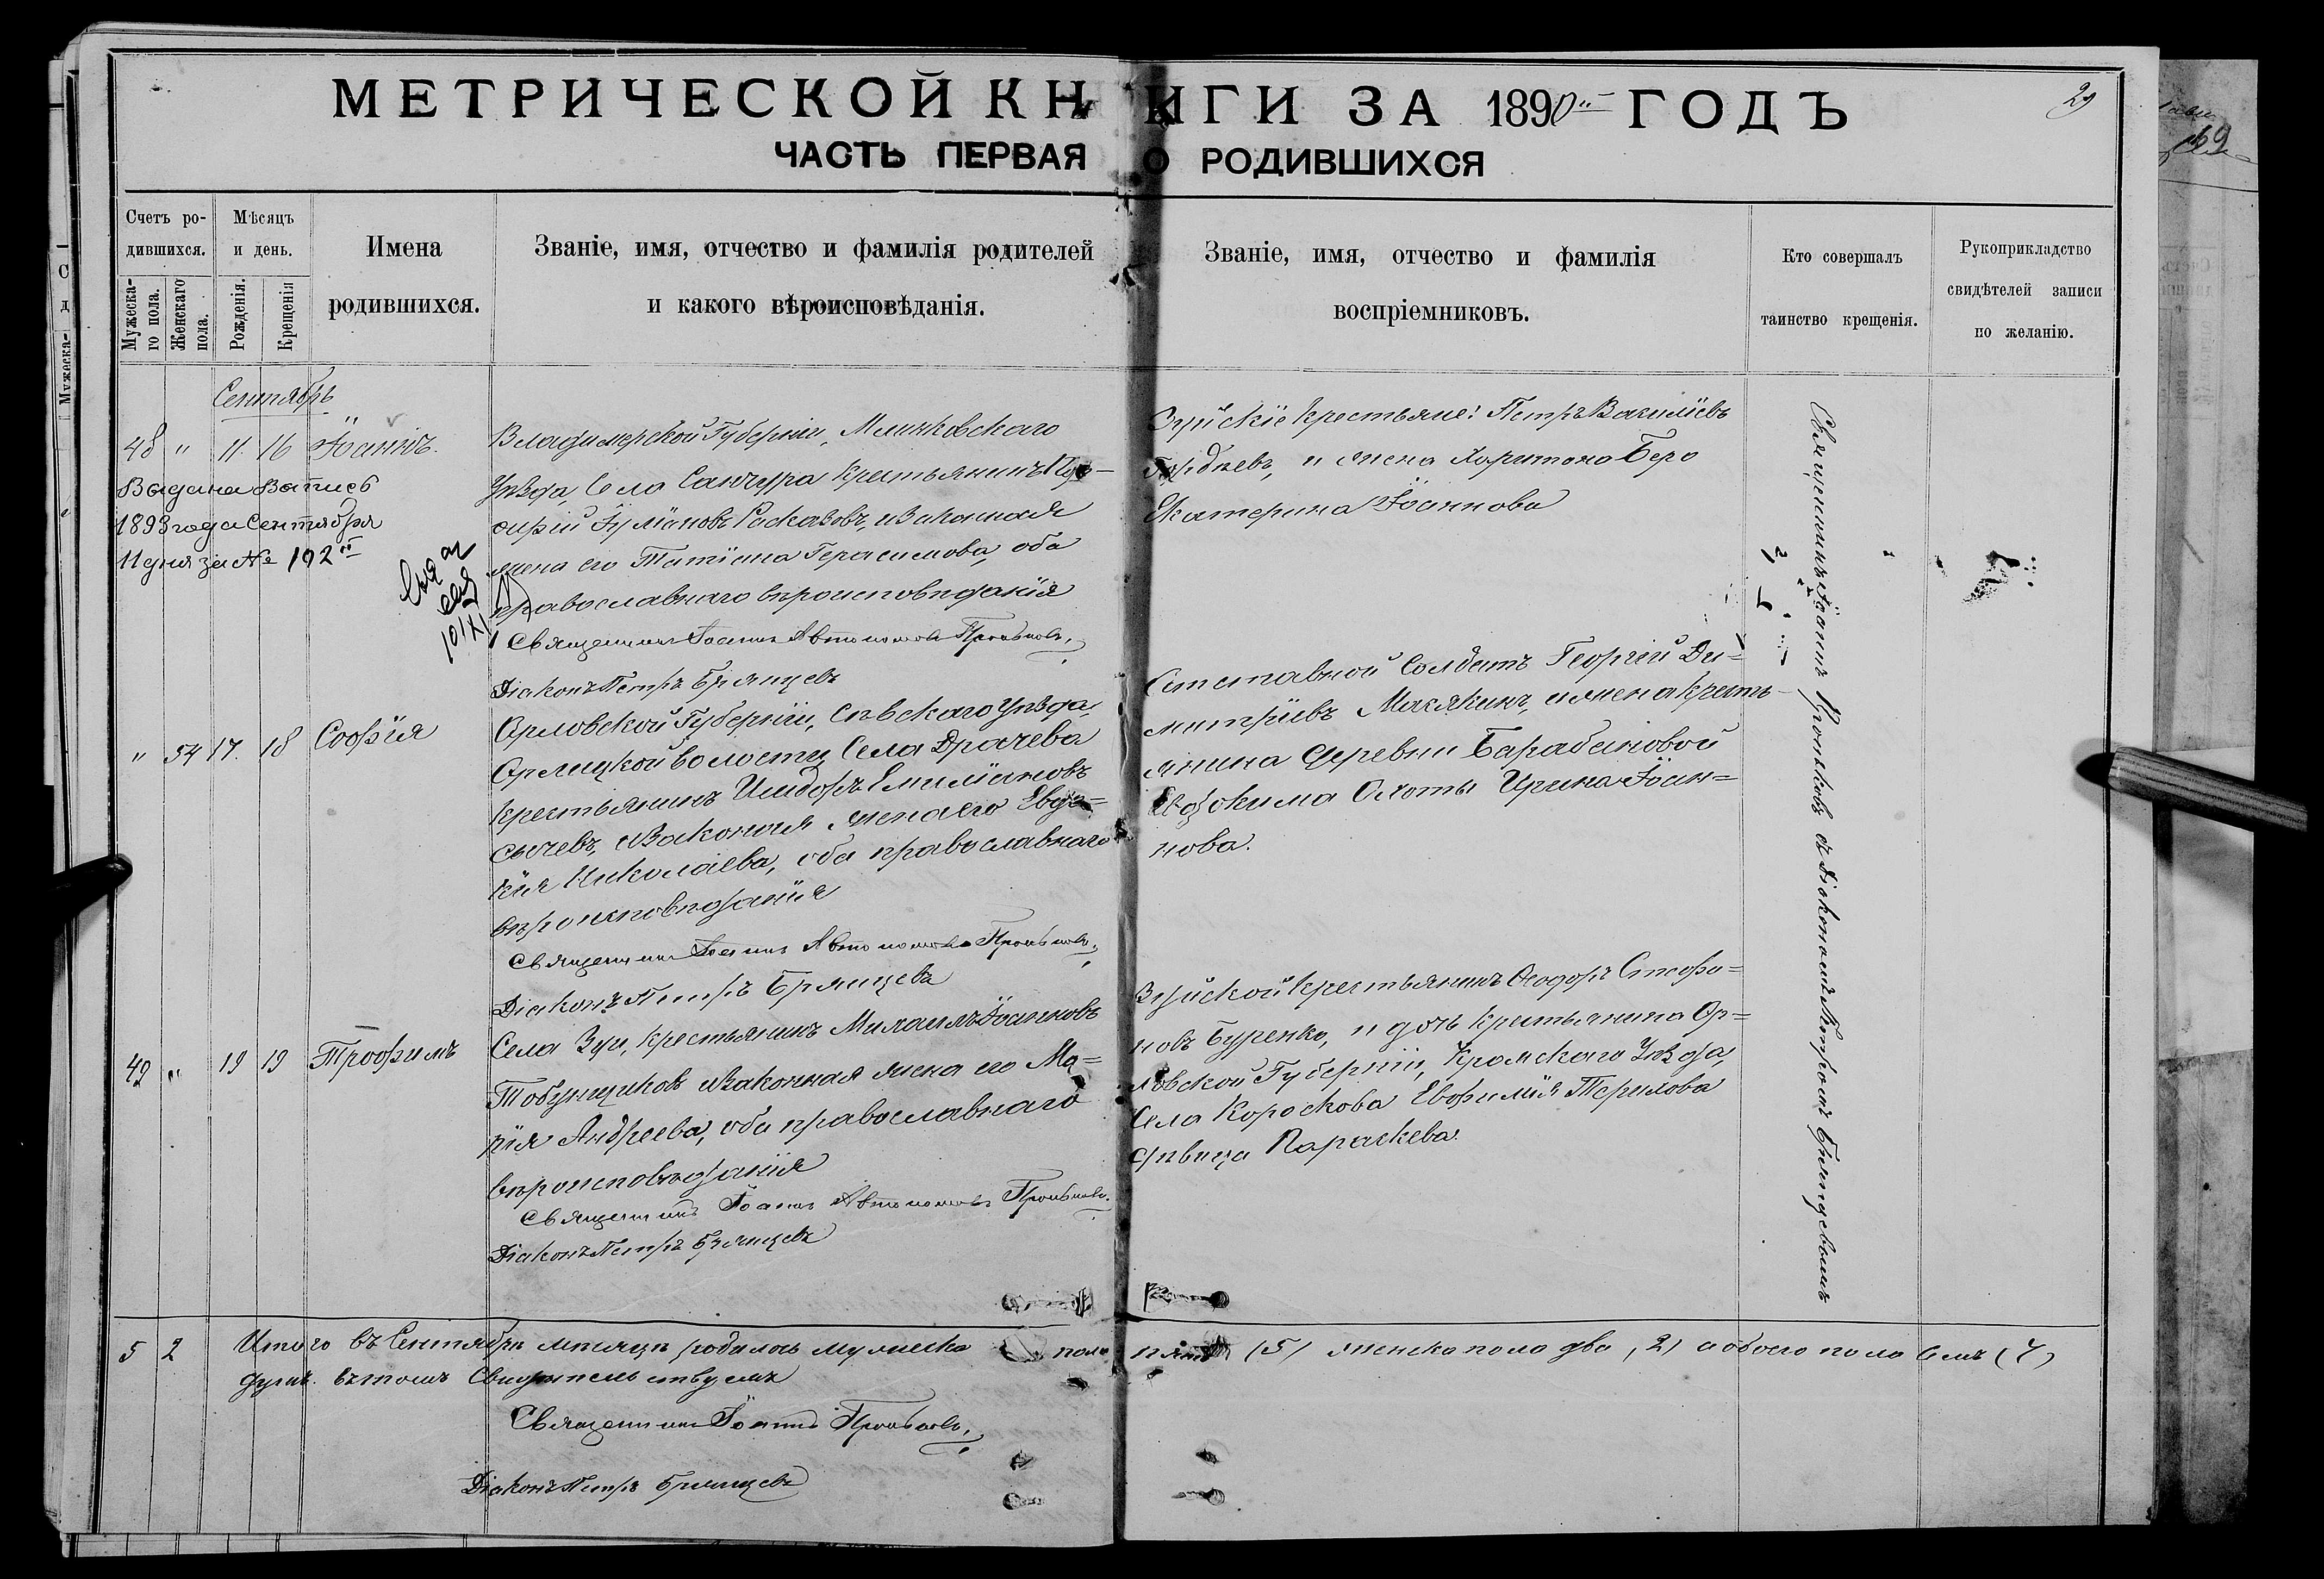 МЕТРИЧЕСКОЙ КНИГИ ЗА 1890й ГОДЪ
29
ЧАСТЬ ПЕРВАЯ О РОДИВШИХСЯ
Счетъ ро-
дившихся.
Мужеска-
го пола.
Женскаго
пола.
Мѣсяцъ
и день.
Рожденія.
Крещенія
Имена
родившихся.
Званіе, имя, отчество и фамилія родителей
и какого вѣроисповѣданія.
Званіе, имя, отчество и фамилія
воспріемниковъ.
Кто совершалъ
таинство крещенія.
Рукоприкладство
свидѣтелей записи
по желанію.
Сентябрь
48 " 11. 16 Іоаннъ.
Выдана Запись
1893 года Сентября
11 дня за № 192
Владимерской Губерніи,
Уѣзда, Села Санчура Крестьянинъ
Раскаковъ, и Законная
жена его Татіана Герасимова, оба
православнаго вѣроисповѣданія
Священникъ Іоаннъ Автономовъ
Діаконъ Петръ Брянцевъ
Зуйскіе крестьяне: Петръ Василіевъ
и жена Харитона Беро
Екатерина Іоаннова
" 54 17. 18 Софія
Орловской Губерніи, Сѣвскаго Уѣзда,
волости, Села Драчева
Крестьянинъ Исидоръ Емиліановъ
Сычевъ, и Законная жена его Евдо=
кія Николаева, оба православнаго
вѣроисповѣданія
Священникъ Іоаннъ Автономовъ
Діаконъ Петръ Брянцевъ
Отставной Солдатъ Георгій Ди=
митріевъ Мякякинъ, и жена кресть-
янина деревни Барабановой
Евдокима Охоты Ирина Іоан=
нова.
49 " 19 19 Трофимъ
Села Зуи, крестьянинъ Михаилъ Іоанновъ
Тобунщиковъ и Законная жена его Ма=
рія Андреева, оба православнаго
вѣроисповѣданія
Священникъ Іоаннъ Автономовъ
Діаконъ Петръ Брянцевъ
Зуйской крестьянинъ Ѳеодоръ Стефа=
новъ Буренко, и дочь крестьянина Ор=
ловской Губерніи, Кромскаго Уѣзда,
Села Короскова Евфимія Терихова
дѣвица Параскева.
Священникъ Іоаннъ съ Діакономъ Петромъ Брянцевымъ
5 2 Итого въ Сентябрѣ мѣсяцѣ родилось мужеска пола пять (5) женска пола два (2) а обоего пола Семь (7)
душъ. Въ томъ Свидѣтельствуемъ
Священникъ Іоаннъ
Діаконъ Петръ Брянцевъ